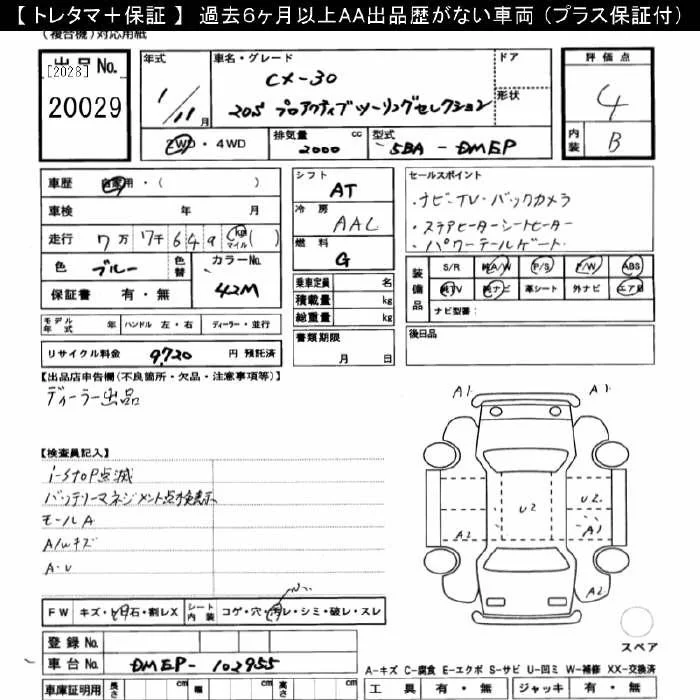 【 トレタマ＋保証 】 過去６ヶ月以上ＡＡ出品歴がない車両（プラス保証付）
(複合機)対応用紙
出品No. [2028] 20029
年式 1/11月
車名・グレード CX-30
20S プロアクティブツーリングセレクション
ドア
形状
評価点 4
内装 B
2WD・4WD
排気量 2000 cc
型式 5BA-DMEP
車歴 自家用・( )
車検 年 月
走行 7万 7千 6 4 9 (km マイル)( )
色 ブルー 色替
カラーNo. 42M
保証書 有・無
シフト AT
冷房 AAC
燃料 G
乗車定員 名
積載量 kg
総重量 kg
書類期限 月 日
セールスポイント
・ナビ・TV・バックカメラ
・ステアヒーターシートヒーター
・パワーテールゲート・
装備品 S/R 純A/W P/S P/W ABS
純TV 純ナビ 革シート 外ナビ エアB
ナビ型番：
後日品
モデル年式 年 ハンドル 左・右 ディーラー・並行
リサイクル料金 9720 円 預託済
【出品店申告欄(不良箇所・欠品・注意事項等)】
ディーラー出品
【検査員記入】
i-STOP点滅
バッテリーマネジメント点検表示
モールA
A/Wキズ
A・U
A1 A1
U2 U2
A2 A1
A2
FW キズ・ヒ・石・割レX
シート内装 コゲ・穴・汚レ・シミ・破レ・スレ
登録No.
車台No. DMEP-102955
スペア
A-キズ C-腐食 E-エクボ S-サビ U-凹ミ W-補修 XX-交換済
車庫証明用 長さ cm 幅 cm 高さ cm
工具 有・無 ジャッキ 有・無